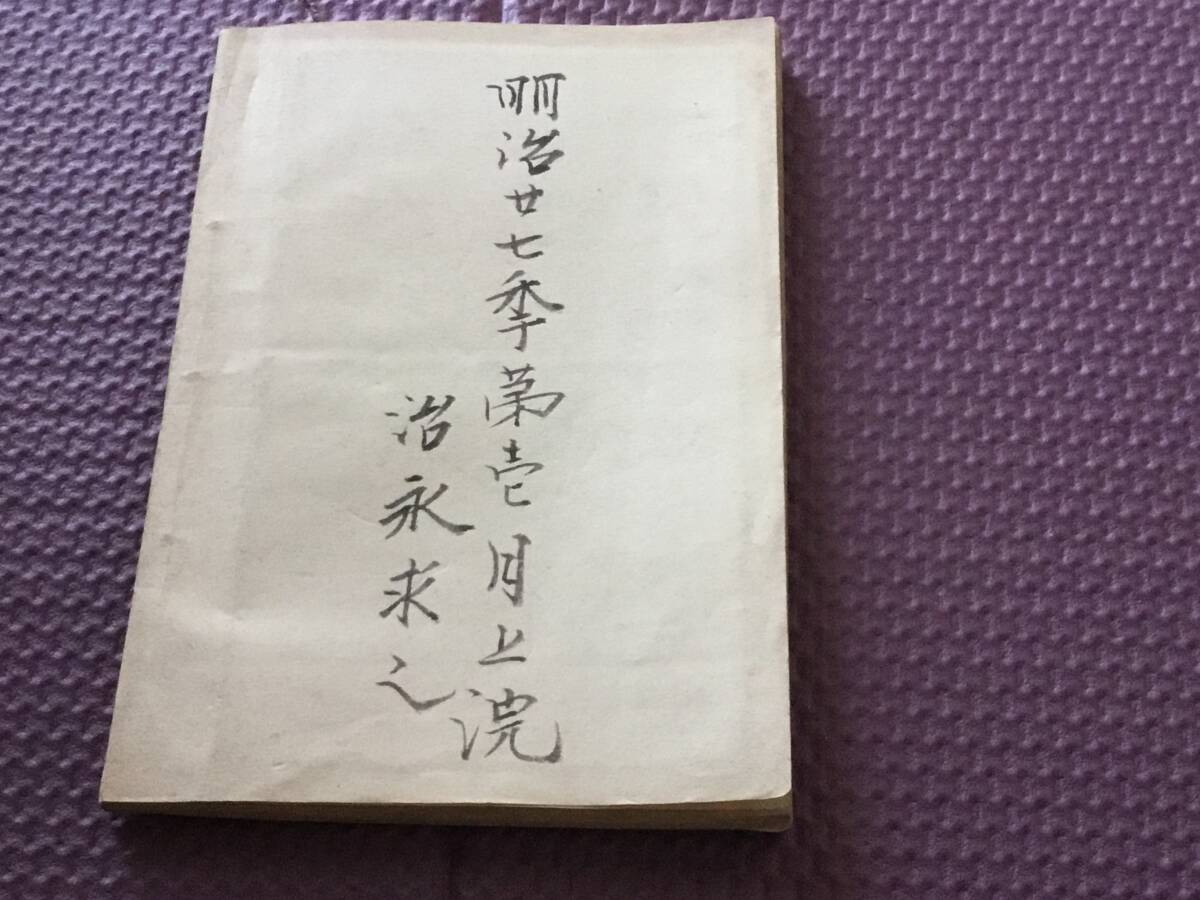 明治廿七季第壱月上浣
治永求之